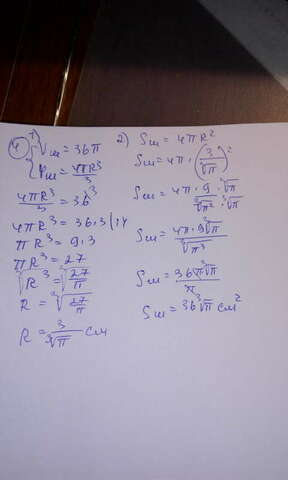 4) 1) { Vш = 36π
Vш = 4πR³/3
4πR³/3 = 36
4πR³ = 36·3 |:4
πR³ = 9·3
πR³ = 27
∛R³ = ∛(27/π)
R = ∛(27/π)
R = 3/∛π см
2) Sш = 4πR²
Sш = 4π·(3/∛π)²
Sш = 4π·9·∛π/∛π²·∛π
Sш = 4π·9∛π/∛π³
Sш = 36π∛π/π
Sш = 36∛π см²